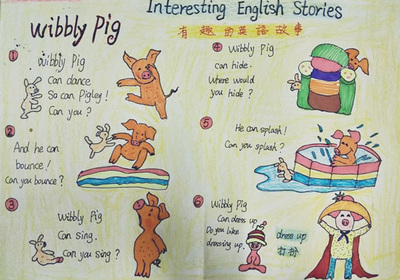 Interesting English Stories
Wibbly Pig
有趣的英语故事
①
Wibbly Pig
Can dance
So can Pigley!
Can you?
②
And he can
bounce!
Can you bounce?
③
Wibbly Pig
Can sing.
Can you sing?
④
Wibbly Pig
can hide.
Where would
you hide?
⑤
He can splash!
Can you splash?
⑥
Wibbly Pig
Can dress up
Do you like
dressing up.
dress up
打扮